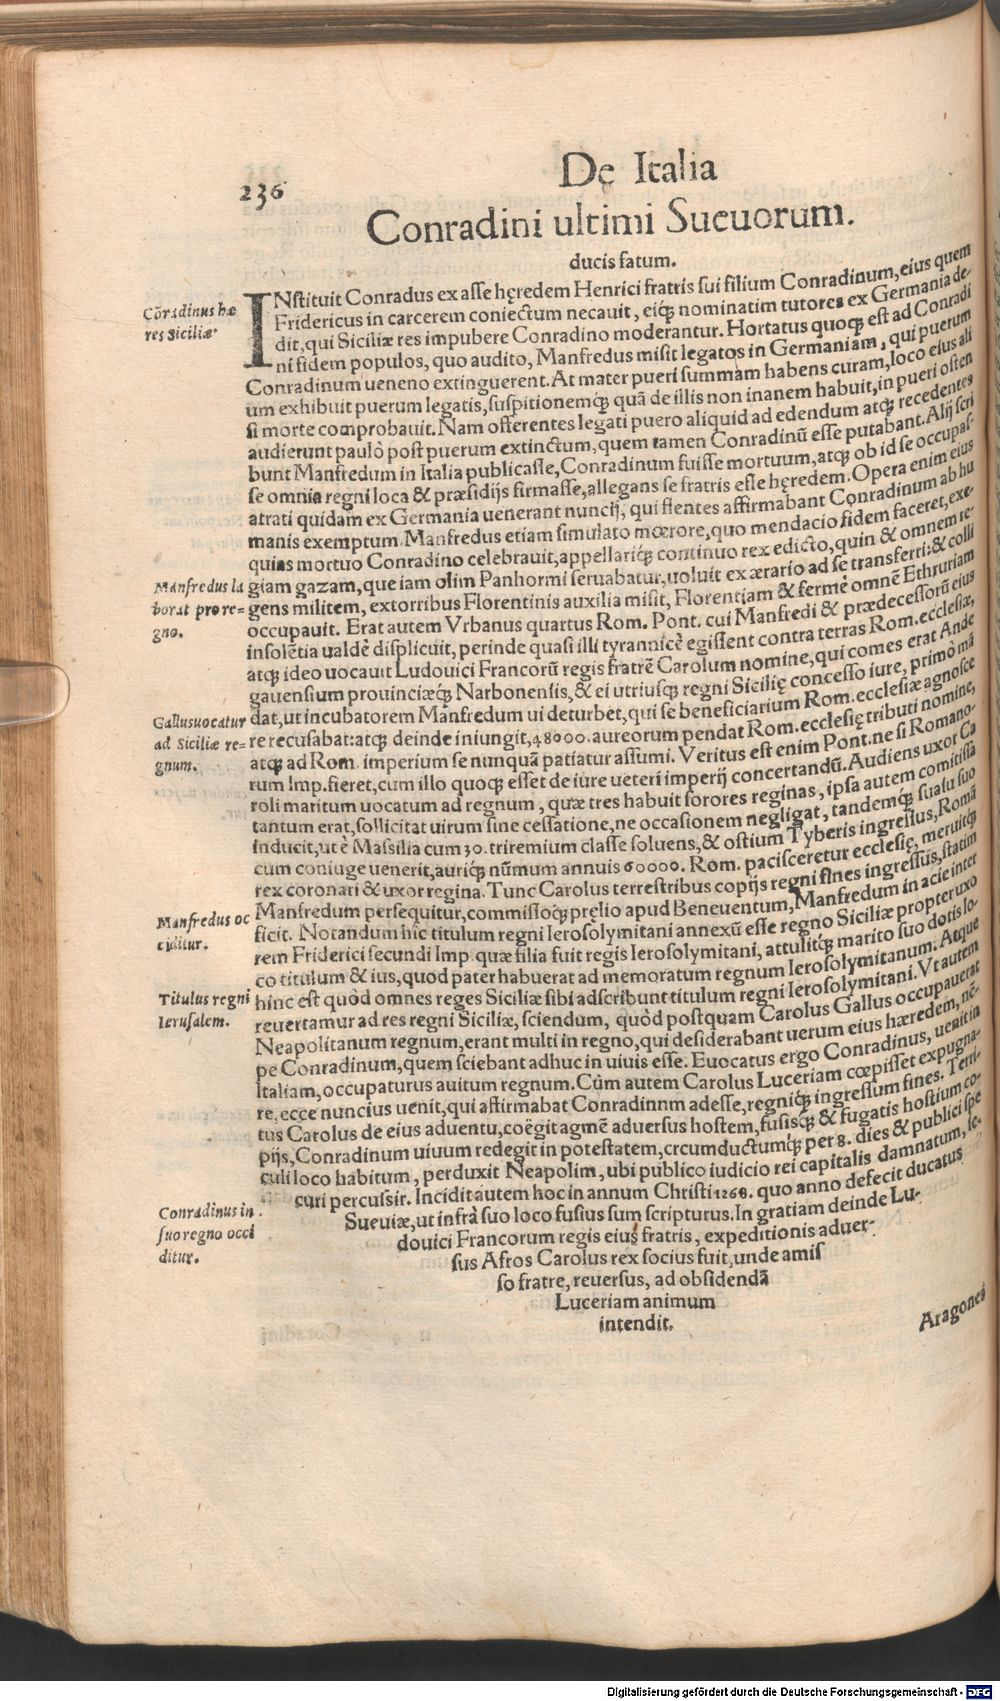 236
De Italia
Conradini ultimi Sueuorum.
ducis fatum.
Cõradinus hæ
res Siciliæ
INstituit Conradus ex asse hęredem Henrici fratris sui filium Conradinum, eius quem
Fridericus in carcerem coniectum necauit, eiq́; nominatim tutores ex Germania de-
dit, qui Siciliæ res impubere Conradino moderantur. Hortatus quoq; est ad Conradi
ni fidem populos, quo audito, Manfredus misit legatos in Germaniam, qui puerum
Conradinum ueneno extinguerent. At mater pueri summam habens curam, loco eius ali
um exhibuit puerum legatis, suspitionemq́; quã de illis non inanem habuit, in pueri osten
si morte comprobauit. Nam offerentes legati puero aliquid ad edendum atq; recedentes
audierunt paulò pòst puerum extinctum, quem tamen Conradinũ esse putabant. Alij scri
bunt Manfredum in Italia publicasse, Conradinum fuisse mortuum, atq; ob id se occupas-
se omnia regni loca & præsidijs firmasse, allegans se fratris esse hęredem. Opera enim eius
atrati quidam ex Germania uenerant nuncij, qui flentes affirmabant Conradinum ab hu
manis exemptum. Manfredus etiam simulato mœrore, quo mendacio fidem faceret, exe-
quias mortuo Conradino celebrauit, appellariq́; continuo rex edicto, quin & omnem re-
Manfredus la
borat pro re-
gno.
giam gazam, que iam olim Panhormi seruabatur, uoluit ex ærario ad se transferri: & colli
gens militem, extorribus Florentinis auxilia misit, Florentiam & fermè omnẽ Ethruriam
occupauit. Erat autem Vrbanus quartus Rom. Pont. cui Manfredi & prædecessorũ eius
insolẽtia ualdè displicuit, perinde quasi illi tyrannicè egissent contra terras Rom. ecclesiæ,
atq; ideo uocauit Ludouici Francorũ regis fratrẽ Carolum nomine, qui comes erat Ande
gauensium prouinciæq́; Narbonensis, & ei utriusq; regni Sicilię concesso iure, primò mã
Gallus uocatur
ad Siciliæ re-
gnum.
dat, ut incubatorem Manfredum ui deturbet, qui se beneficiarium Rom. ecclesiæ agnosce
re recusabat: atq; deinde iniungit, 48000. aureorum pendat Rom. ecclesię tributi nomine,
atq; ad Rom. imperium se nunquã patiatur assumi. Veritus est enim Pont. ne si Romano-
rum Imp. fieret, cum illo quoq; esset de iure ueteri imperij concertandũ. Audiens uxor Ca
roli maritum uocatum ad regnum, quæ tres habuit sorores reginas, ipsa autem comitissa
tantum erat, sollicitat uirum sine cessatione, ne occasionem negligat, tandemq́; suasu suo
inducit, ut è Massilia cum 30. triremium classe soluens, & ostium Tyberis ingressus, Romã
cum coniuge uenerit, auriq́; nũmum annuis 60000. Rom. pacisceretur ecclesię, meruitq́;
rex coronari & uxor regina. Tunc Carolus terrestribus copijs regni fines ingressus, statim
Manfredus oc
ciditur.
Manfredum persequitur, commissoq́; prælio apud Beneuentum, Manfredum in acie inter
ficit. Notandum hîc titulum regni Ierosolymitani annexũ esse regno Siciliæ propter uxo
rem Friderici secundi Imp. quæ filia fuit regis Ierosolymitani, attulitq́; marito suo dotis lo-
co titulum & ius, quod pater habuerat ad memoratum regnum Ierosolymitanum. Atque
Titulus regni
Ierusalem.
hinc est quòd omnes reges Siciliæ sibi adscribunt titulum regni Ierosolymitani. Vt autem
reuertamur ad res regni Siciliæ, sciendum, quòd postquam Carolus Gallus occupauerat
Neapolitanum regnum, erant multi in regno, qui desiderabant uerum eius hæredem, nẽ-
pe Conradinum, quem sciebant adhuc in uiuis esse. Euocatus ergo Conradinus, uenit in
Italiam, occupaturus auitum regnum. Cùm autem Carolus Luceriam cœpisset expugna-
re, ecce nuncius uenit, qui affirmabat Conradinnm adesse, regniq́; ingressum fines. Terri-
tus Carolus de eius aduentu, coëgit agmẽ aduersus hostem, fusisq́; & fugatis hostium co-
pijs, Conradinum uiuum redegit in potestatem, crcumductumq́; per 8. dies & publici spe
culi loco habitum, perduxit Neapolim, ubi publico iudicio rei capitalis damnatum, se-
Conradinus in
suo regno occi
ditur.
curi percussit. Incidit autem hoc in annum Christi 1268. quo anno defecit ducatus
Sueuiæ, ut infrà suo loco fusius sum scripturus. In gratiam deinde Lu-
douici Francorum regis eius fratris, expeditionis aduer-
sus Afros Carolus rex socius fuit, unde amis
so fratre, reuersus, ad obsidendã
Luceriam animum
intendit.
Aragones
Digitalisierung gefördert durch die Deutsche Forschungsgemeinschaft - DFG